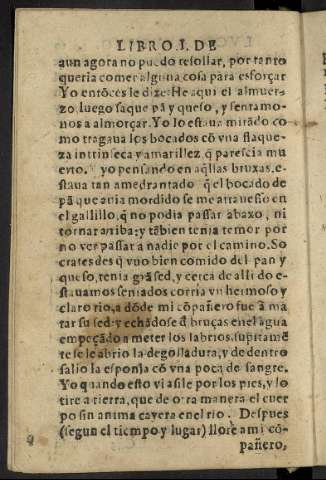 LIBRO. I. DE
aun agora no puedo resollar, por tanto
queria comer alguna cosa para esforçar
Yo entõces le dize: He aqui el almuer-
zo, luego saque pã y queso, y sentamo-
nos a almorçar. Yo lo estaua mirãdo co
mo tragaua los bocados cõ vna flaque-
za intrinseca y amarillez q̃ parescia mu
erto. yo pensando en aq̃llas bruxas, e-
staua tan amedrantado q̃ el bocado de
pã que auia mordido se me atrauesso en
el gallillo, q̃ no podia passar abaxo, ni
tornar arriba: y tãbien tenia temor por
no ver passar a nadie por el camino. So
crates desq̃ vuo bien comido del pan y
queso, tenia grã sed, y cerca de alli do e-
stauamos sentados corria vn hermoso y
claro rio, a dõde mi cõpañero fue a ma
tar su sed: y echãdose d̃ bruças en el agua
empeçãdo a meter los labrios, supitamẽ
te se le abrio la degolladura, y de dentro
salio la esponja cõ vna poca de sangre.
Yo quando esto vi asile por los pies, y lo
tire a tierra, que de otra manera el cuer
po sin anima cayera en el rio. Despues
(segun el tiempo y lugar) llorè a mi cõ-
pañero,